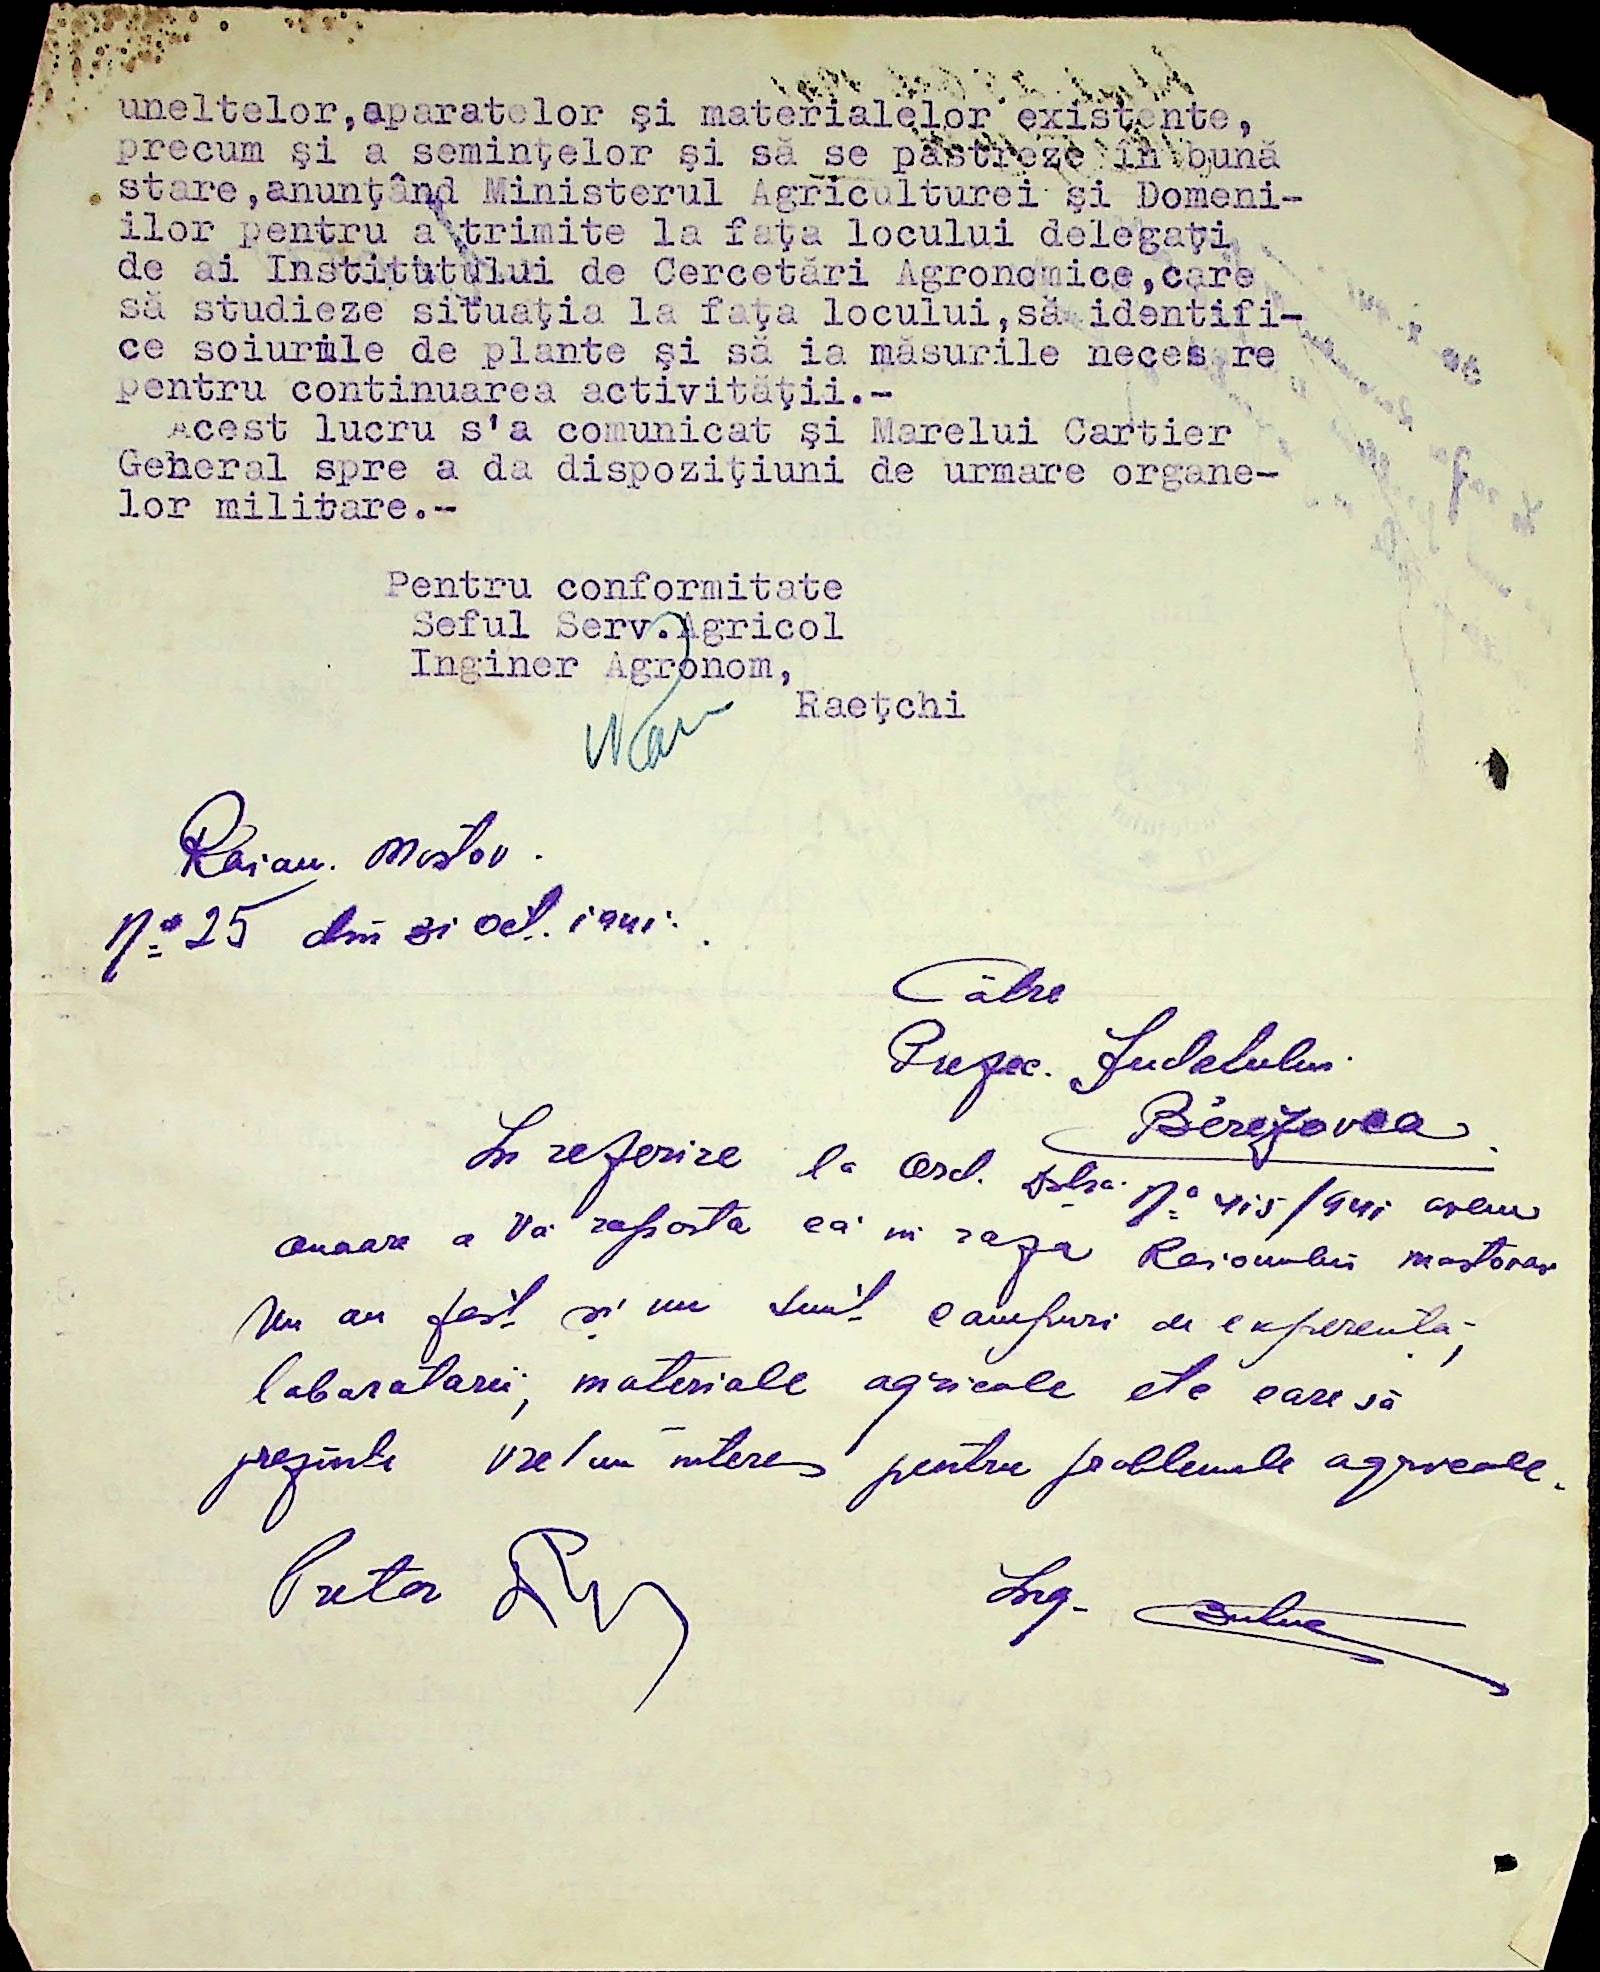 uneltelor,aparatelor şi materialelor existente,
precum şi a seminţelor şi să se păstreze în bună
stare,anunţând Ministerul Agriculturei şi Domeni-
ilor pentru a trimite la faţa locului delegaţi
de ai Institutului de Cercetări Agronomice,care
să studieze situaţia la faţa locului,să identifi-
ce soiurile de plante şi să ia măsurile necesare
pentru continuarea activităţii.-
Acest lucru s'a comunicat şi Marelui Cartier
General spre a da dispoziţiuni de urmare organe-
lor militare.-
Pentru conformitate
Seful Serv.Agricol
Inginer Agronom,
Raeţchi
Raion. Mostov.
No 25 din 31 Oct. 1941.
Către
Prefec. Judetului
Berezovca
In referire la Ord. Dstra. No 415/941 avem
onoare a Vă raporta că in raza Raionului Mostovoi
Nu au fost şi nu sunt campuri de experenţă,
laboratorii, materiale agricole etc care să
prezinte vre/un interes pentru problemele agricole.
Pretor
Ing.